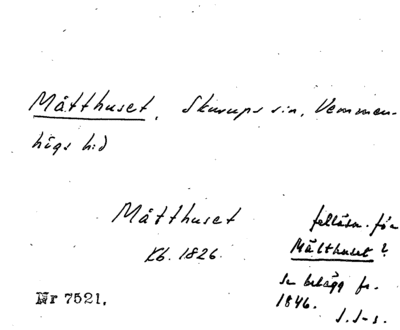 Måtthuset, Skurups sn, Vemmen-
högs hd
Måtthuset
Kb. 1826.
felläsn. för
Målthuset?
se belägg fr.
1846.
Nr 7521.